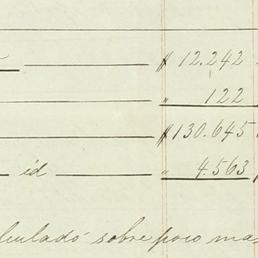 $ 12.242
" 122
$ 130.645
id " 4.563
lculado sobre poco mas